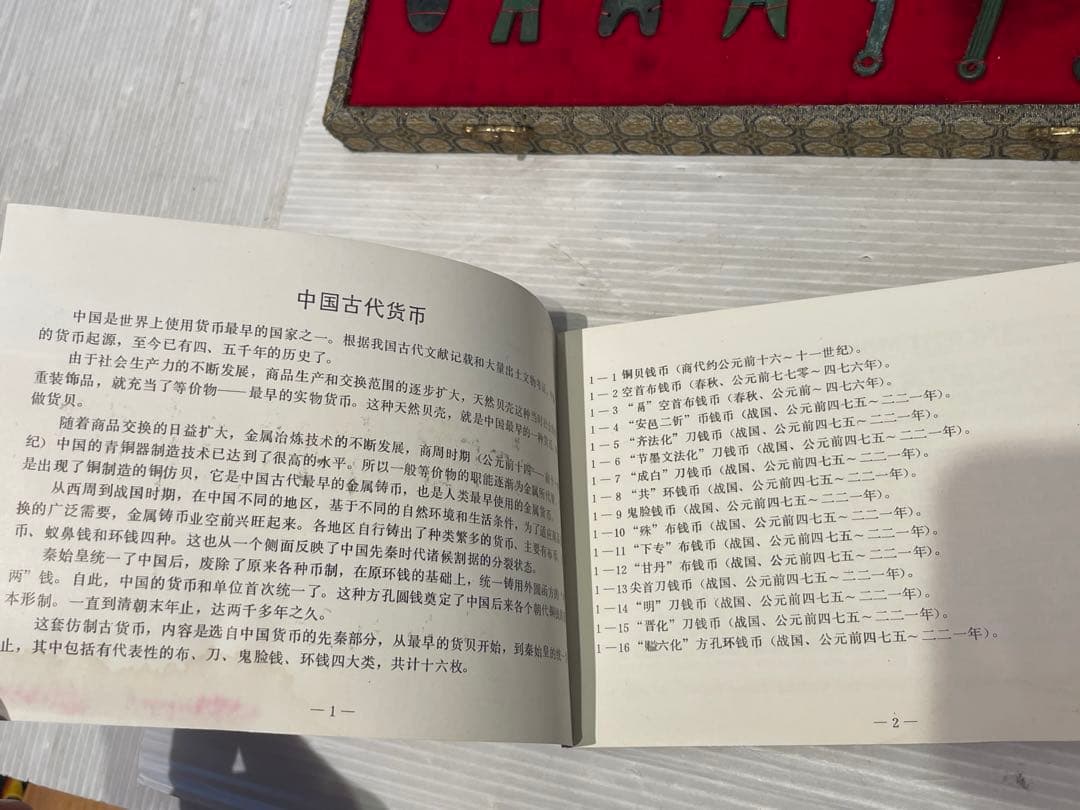 中国古代货币
中国是世界上使用货币最早的国家之一。根据我国古代文献记载和大量出土文物考证，
的货币起源，至今已有四、五千年的历史了。
由于社会生产力的不断发展，商品生产和交换范围的逐步扩大，天然贝壳这种当时
重装饰品，就充当了等价物——最早的实物货币。这种天然贝壳，就是中国最早的一种货币，
做货贝。
随着商品交换的日益扩大，金属冶炼技术的不断发展，商周时期（公元前十四——前
纪）中国的青铜器制造技术已达到了很高的水平。所以一般等价物的职能逐渐为金属所代替，
是出现了铜制造的铜仿贝，它是中国古代最早的金属铸币，也是人类最早使用的金属货币。
从西周到战国时期，在中国不同的地区，基于不同的自然环境和生活条件，为了适应商品
换的广泛需要，金属铸币业空前兴旺起来。各地区自行铸出了种类繁多的货币、主要有布币、
币、蚁鼻钱和环钱四种。这也从一个侧面反映了中国先秦时代诸候割据的分裂状态。
秦始皇统一了中国后，废除了原来各种币制，在原环钱的基础上，统一铸用外圆函方的“
两”钱。自此，中国的货币和单位首次统一了。这种方孔圆钱奠定了中国后来各个朝代铜钱
本形制。一直到清朝末年止，达两千多年之久。
这套仿制古货币，内容是选自中国货币的先秦部分，从最早的货贝开始，到秦始皇的统一
止，其中包括有代表性的布、刀、鬼脸钱、环钱四大类，共计十六枚。
—1—
1—1 铜贝钱币（商代约公元前十六～十一世纪）。
1—2 空首布钱币（春秋、公元前七七零～四七六年）。
1—3 “ ”空首布钱币（春秋、公元前～四七六年）。
1—4 “安邑二釿”币钱币（战国、公元前四七五～二二一年）。
1—5 “齐法化”刀钱币（战国、公元前四七五～二二一年）。
1—6 “节墨文法化”刀钱币（战国、公元前四七五～二二一年）。
1—7 “成白”刀钱币（战国、公元前四七五～二二一年）。
1—8 “共”环钱币（战国、公元前四七五～二二一年）。
1—9 鬼脸钱币（战国、公元前四七五～二二一年）。
1—10 “殊”布钱币（战国、公元前四七五～二二一年）。
1—11 “下专”布钱币（战国、公元前四七五～二二一年）。
1—12 “甘丹”布钱币（战国、公元前四七五～二二一年）。
1—13 尖首刀钱币（战国、公元前四七五～二二一年）。
1—14 “明”刀钱币（战国、公元前四七五～二二一年）。
1—15 “晋化”刀钱币（战国、公元前四七五～二二一年）。
1—16 “賹六化”方孔环钱币（战国、公元前四七五～二二一年）。
—2—